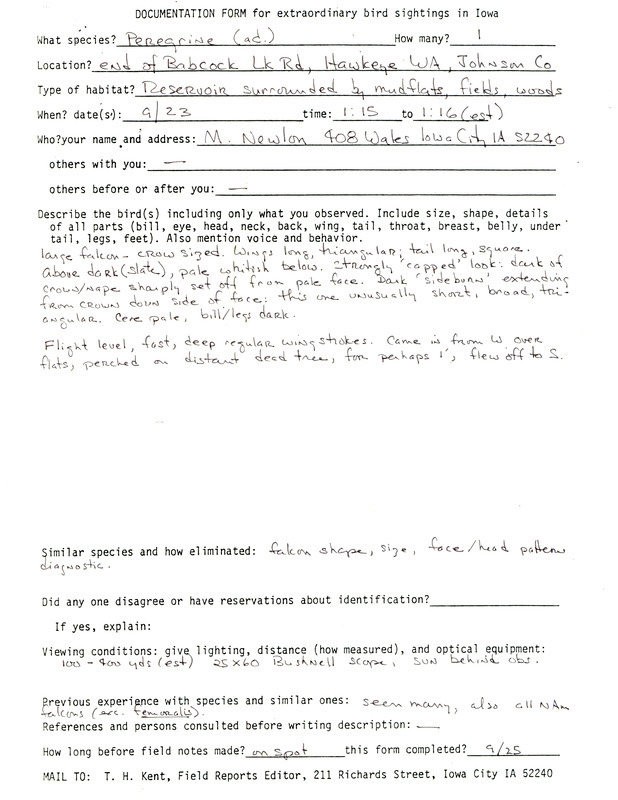 DOCUMENTATION FORM for extraordinary bird sightings in Iowa
What species? Peregrine (ad.) How many? 1
Location? end of Babcock Lk Rd, Hawkeye WA, Johnson Co
Type of habitat? Reservoir surrounded by mudflats, fields, woods
When? date(s): 9/23 time: 1:15 to 1:16 (est)
Who?your name and address: M. Newlon 408 Wales Iowa City IA 52240
others with you: —
others before or after you: —
Describe the bird(s) including only what you observed. Include size, shape, details
of all parts (bill, eye, head, neck, back, wing, tail, throat, breast, belly, under
tail, legs, feet). Also mention voice and behavior.
large falcon - crow sized. Wings long, triangular; tail long, square.
Above dark (slate), pale whitish below. Strongly 'capped' look: dark of
crown/nape sharply set off from pale face. Dark 'sideburn' extending
from crown down side of face: this one unusually short, broad, tri-
angular. Cere pale, bill/legs dark.
Flight level, fast, deep regular wingstrokes. Came in from W over
flats, perched on distant dead tree, for perhaps 1', flew off to S.
Similar species and how eliminated: falcon shape, size, face/head pattern
diagnostic.
Did any one disagree or have reservations about identification?
If yes, explain:
Viewing conditions: give lighting, distance (how measured), and optical equipment:
100-400 yds (est) 25x60 Bushnell scope, sun behind obs.
Previous experience with species and similar ones: seen many, also all NAm
falcons (exc. femoralis).
References and persons consulted before writing description: —
How long before field notes made? on spot this form completed? 9/25
MAIL TO: T. H. Kent, Field Reports Editor, 211 Richards Street, Iowa City IA 52240